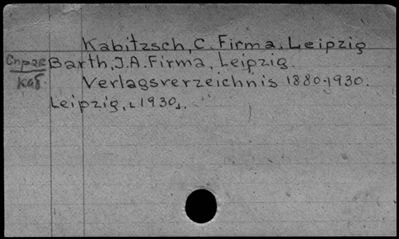 Kabitzsch, C. Firma, Leipzig
Справ
Каб.
Barth, J.A. Firma, Leipzig.
Verlagsverzeichnis 1880-1930.
Leipzig, [1930].